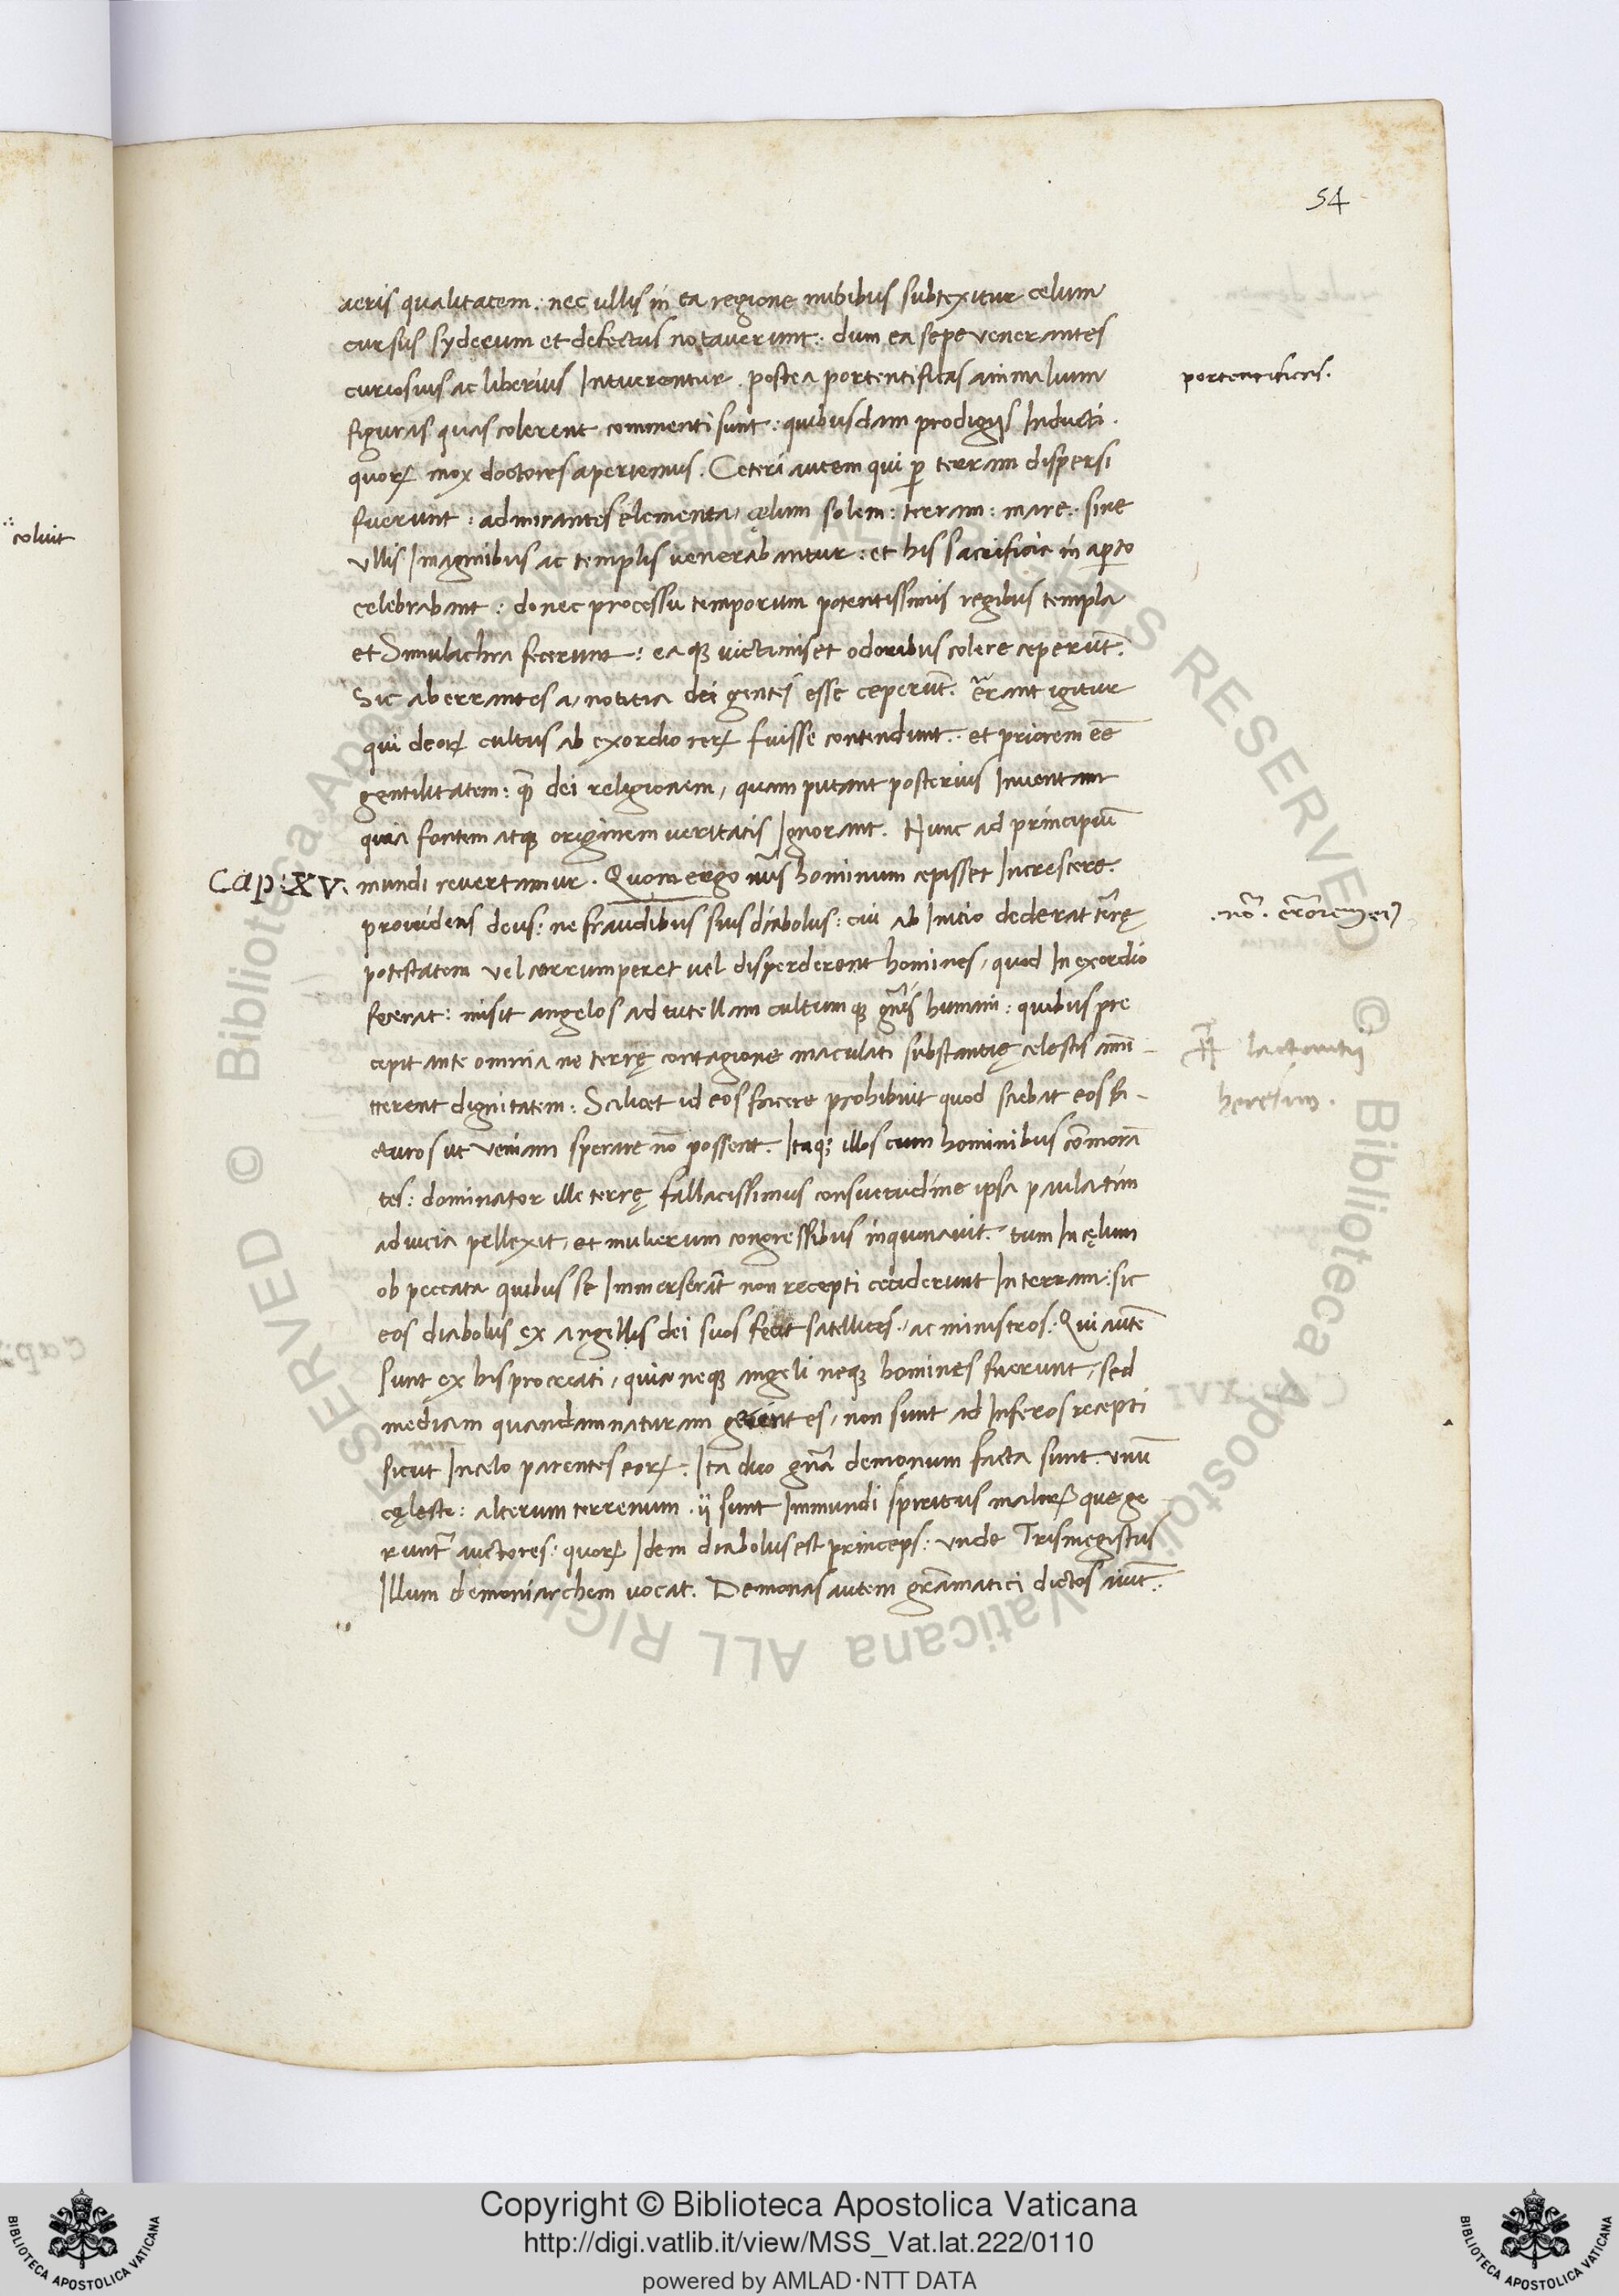 54
aeris qualitatem: nec ullis in ea regione nubibus subtexitur celum
cursus syderum et defectus notaverunt: dum ea sepe venerantes
curiosius ac liberius Intuerentur. postea portentificas animalium
portentificas.
figuras quas colerent commenti sunt: quibusdam prodigijs Inducti.
quoꝝ mox doctores aperiemus. Ceteri autem qui ꝑ terram dispersi
fuerunt: admirantes elementa, cęlum solem: terram: mare: sine
coluit
ullis Imaginibus ac templis venerabantur: et his sacrificia in aꝑto
celebrabant: donec processu temporum potentissimis regibus templa
et Simulachra fecerunt: eaqꝫ victimis et odoribus colere ceperūt.
Sic aberrantes a notitia dei gentes esse ceperūt. Errant igitur
qui deoꝝ cultus ab exordio reꝝ fuisse contendunt: et priorem eē
gentilitatem: q̄ dei religionem, quam putant posterius Inventam
quia fontem atqꝫ originem veritatis Ignorant. Nunc ad principiū
Cap: XV.
mundi revertamur. Quom ergo nūs hominum cepisset Increscere.
providens deus: ne fraudibus suis diabolus: cui ab Initio dederat tr̄ę
.nō. errorem ei
potestatem vel corrumperet vel disperderent homines, quod In exordio
fecerat: misit angelos ad tutellam cultumqꝫ gn̄is humani: quibus pre
cepit ante omnia ne terrę contagione maculati substantię celestis ami
lactantij
tterent dignitatem: Scilicet id eos facere prohibuit quod sciebat eos fa-
heresim.
cturos ut veniam sperare nō possent. Itaqꝫ illos cum hominibus cōmorā
tes: dominator ille terrę fallacissimus consuetudine ipsa paulatim
ad vicia pellexit, et mulierum congressibus inquinavit. tum In cęlum
ob peccata quibus se Immerserāt non recepti ceciderunt In terram: sic
eos diabolus ex angellis dei suos fecit satellites, ac ministros: Qui autē
Sunt ex his procreati, quia neqꝫ angeli neqꝫ homines fuerunt, sed
mediam quandam naturam gerentes, non sunt ad Inferos recepti
sicut In celo parentes eoꝝ: Ita duo gn̄a demonum facta sunt. unū
cęleste: alterum terrenum. ij sunt Immundi spiritus maloꝝ que ge
runtr̄ auctores: quoꝝ Idem diabolus est princeps: unde Trismegistus
Illum demoniarchem vocat. Demonas autem grāmatici dictos aiūt.
© Biblioteca Apostolica Vaticana ALL RIGHTS RESERVED
Copyright © Biblioteca Apostolica Vaticana
http://digi.vatlib.it/view/MSS_Vat.lat.222/0110
powered by AMLAD·NTT DATA
BIBLIOTECA APOSTOLICA VATICANA
BIBLIOTECA APOSTOLICA VATICANA